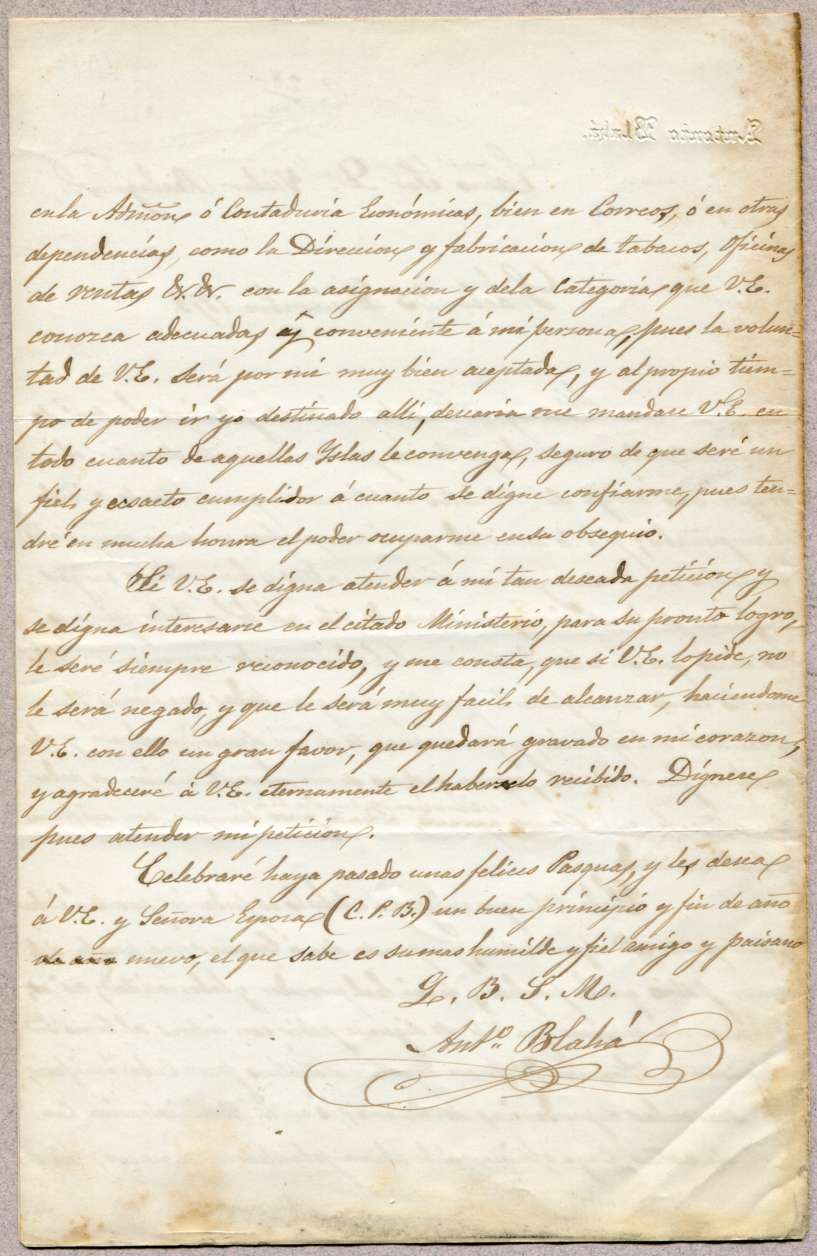 Antonio Blahá.
en la Admõn ó Contaduria Económicas, bien en Correos, ó en otras
dependencias, como la Direccion y fabricacion de tabacos, Oficinas
de rentas &. &. con la asignacion y de la Categoria que V.E.
conozca adecuada y conveniente á mi persona, pues la volun=
tad de V.E. será por mi muy bien aceptada, y al propio tiem=
po de poder ir yo destinado alli, desearia me mandase V.E. en
todo cuanto de aquellas Yslas le convenga, seguro de que seré un
fiel y ecsacto cumplidor á cuanto se digne confiarme, pues ten=
dré en mucha honra el poder ocuparme en su obsequio.
Si V.E. se digna atender á mi tan deseada peticion y
se digna interesarse en el citado Ministerio, para su pronto logro,
le seré siempre reconocido, y me consta, que si V.E. lo pide, no
le será negado, y que le será muy facil de alcanzar, haciendome
V.E. con ello un gran favor, que quedará gravado en mi corazon,
y agradeceré á V.E. eternamente el haberlo recibido. Dígnese
pues atender mi peticion.
Celebraré haya pasado unas felices Pasquas, y les desea
á V.E. y Señora Esposa (C.P.B.) un buen principio y fin de año
nuevo, el que sabe es su mas humilde y fiel amigo y paisano
Q. B. S. M.
Antº. Blahá